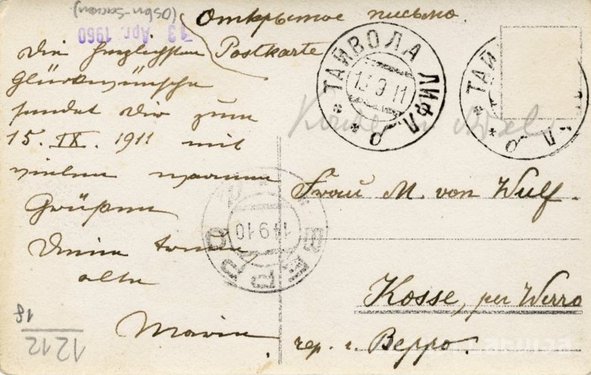 Открытое письмо.
Postkarte
Die herzlichsten
Glückwünsche
sendet Dir zum
15. IX. 1911 mit
vielen warmen
Grüßen
Deine treue
alte
Marie
(Osbn-Sacken)
13 Apr. 1960
1212
18
ТАЙВОЛА ЛИФЛ.
13 9 11
ТАЙ
ВЕРРО
14 9 10
Frau M. von Wulf.
Kosse, per Werro
чер. г. Верро.